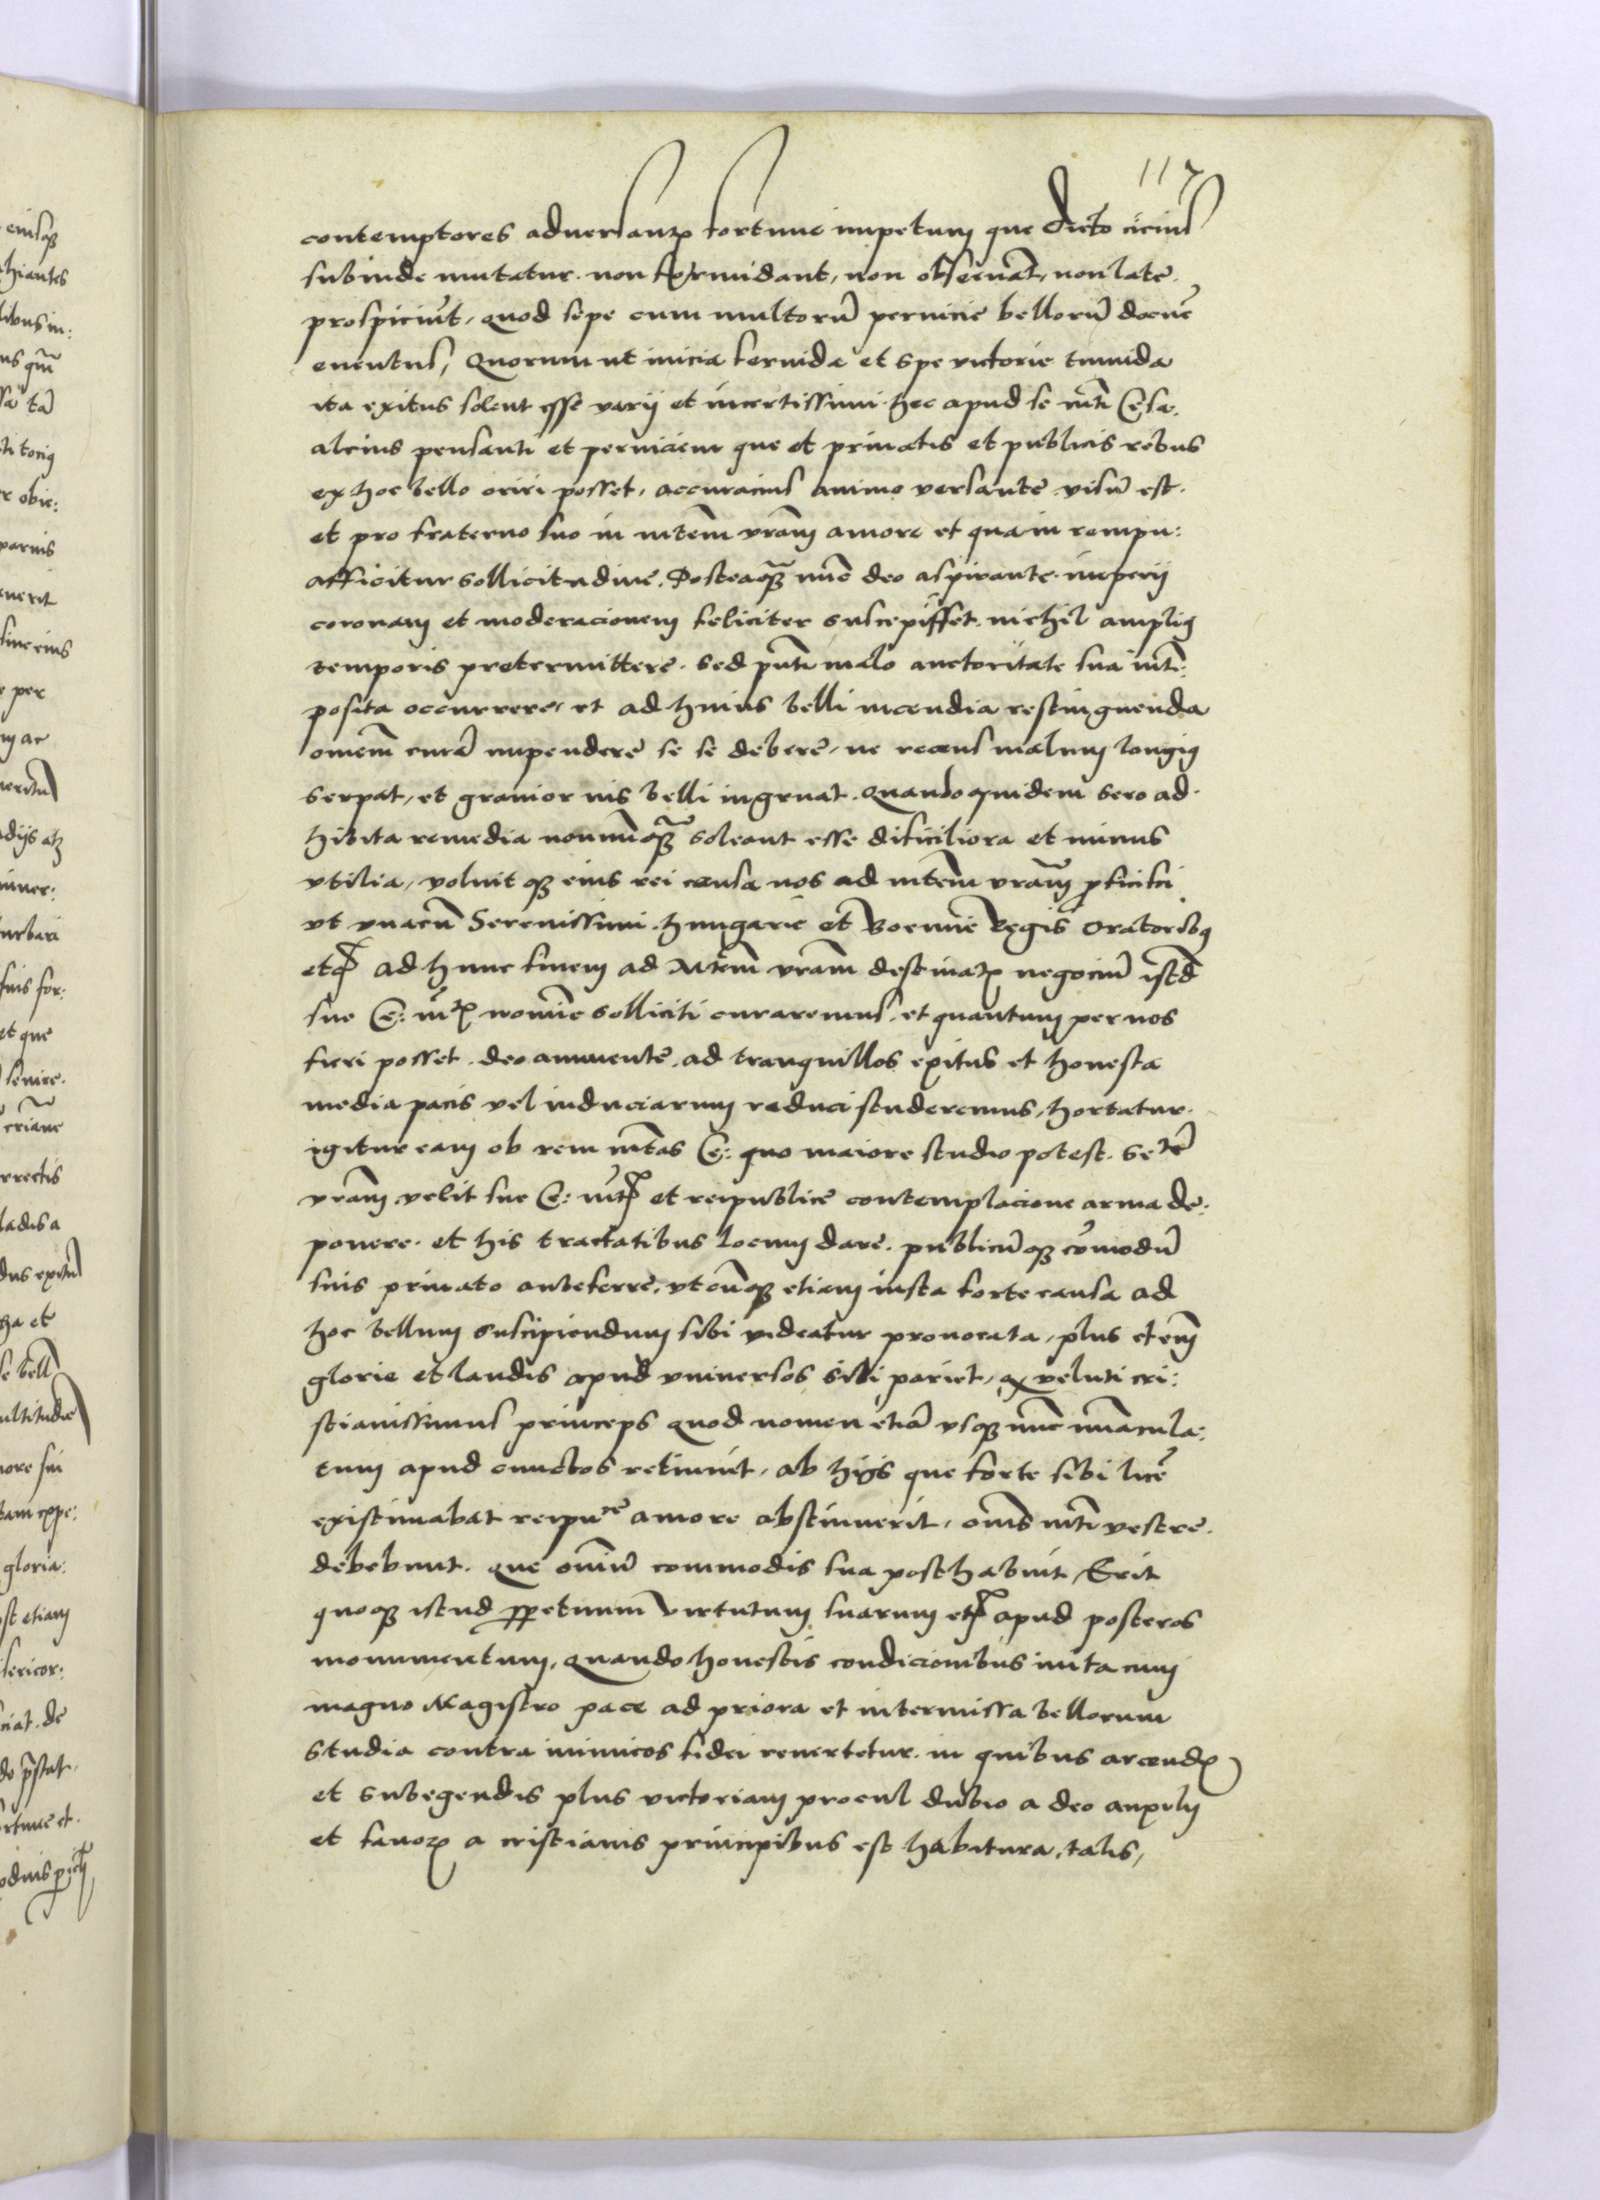 117
contemptores adversantis fortune impetum que dicto cicius
subinde mutatur. non formidant, non observãt, non late.
prospiciũt, quod sepe cum multorũ pernicie bellorũ docuẽ
eventus, Quorum ut inicia fervida et spe victorie tumida
ita exitus solent esse varij et incertissimi. hec apud se mtᷤ Cesa.
alcius pensanti et perniciem que et privatis et publicis rebus
ex hoc bello oriri posset, accuracius animo versante visũ est.
et pro fraterno suo in mtem̃ vram̃ amore et qua in rempu:
afficitur sollicitudine. Posteaqᷓ nũc deo aspirante. imperij
coronam et moderacionem feliciter suscepisset. nichil amplius
temporis pretermittere. sed pñti malo auctoritate sua int̃:
posita occurrere, et ad huius belli incendia restinguenda
omem̃ curã impendere se se debere, ne recens malum longius
serpat, et gravior vis belli ingruat. quandoquidem sero ad.
hibita remedia nonnũqᷓ soleant esse dificiliora et minus
utilia, voluit qꝫ eius rei causa nos ad mtem̃ vram̃ ꝓficisci
ut vnacũ Serenissimi. hungarie et Boemie Regis Oratoribus
etꝭ ad hunc finem ad Mtem̃ vram̃ destinatꝭ negociũ istd̃
sue Ce: mt̃ꝭ nomĩe solliciti curaremus. et quantum per nos
fieri posset. deo annuente. ad tranquillos exitus et honesta
media pacis vel induciarum reduci studeremus, hortatur.
igitur eam ob rem mt̃as Ce: quo maiore studio potest. Setẽ
vram̃ velit sue Ce: mt̃ꝭ et reipublice contemplacione arma de:
ponere. et his tractatibus locum dare. publicũqꝫ cõmodũ
suis privato anteferre, utcũqꝫ etiam iusta forte causa ad
hoc bellum suscipiendum sibi videatur provocata, plus etem̃
glorie et laudis apud vniversos sibi pariet, qꝫ veluti cri:
stianissimus princeps quod nomen etiã vsqꝫ nũc immacula:
tum apud cunctos retinuit, ab hijs que forte sibi licẽ
existimabat reipuᶜᵉ amore abstinuerit, om̃s mt̃i vestre.
debebunt. que om̃iũ commodis sua posthabuit, Erit
quoqꝫ istud ꝑpetuum virtutum suarum etꝭ apud posteros
monumentum, quando honestis condicionibus inita cum
magno Magistro pace ad priora et intermissa bellorum
studia contra inimicos fidei revertetur. in quibus arcendꝭ
et subegendis plus victoriam procul dubio a deo auxilij
et favorꝭ a cristianis principibus est habitura, talis,